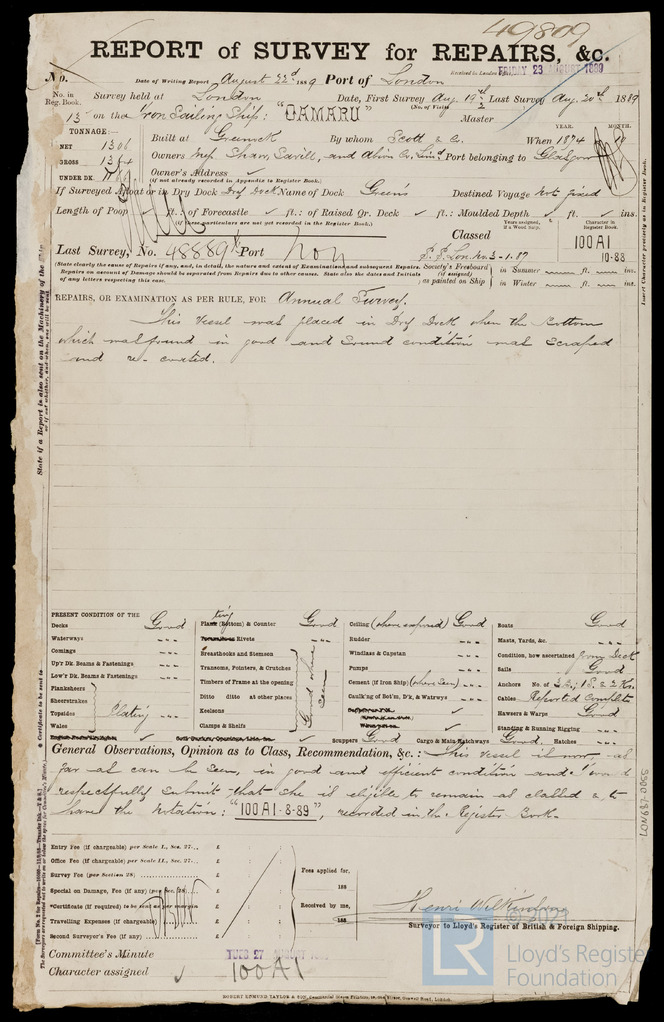 49809
REPORT of SURVEY for REPAIRS, &c.
No. Date of Writing Report August 22d 1889 Port of London Received in London Office FRIDAY 23 AUGUST 1889
No. in Reg. Book. Survey held at London Date, First Survey Aug. 19th Last Survey Aug. 20th 1889
(No. of Visits 2)
13 on the Iron Sailing Ship: "OAMARU" Master
TONNAGE:
NET 1306
GROSS 1364
UNDER DK.
Built at Greenock By whom Scott & Co. When 1874
YEAR. MONTH.
Owners Mess Shaw, Savill, and Albion Co, Limd Port belonging to Glasgow
Owner's Address
(if not already recorded in Appendix to Register Book.)
If Surveyed Afloat or in Dry Dock Dry Dock Name of Dock Green's Destined Voyage Not fixed
Length of Poop ft. of Forecastle ft.: of Raised Qr. Deck ft.: Moulded Depth ft. ins.
(if these particulars are not yet recorded in the Register Book.)
Years assigned, if a Wood Ship. Character in Register Book.
Last Survey, No. 48889 Port Lon Classed
S.S. Lon. No. 3-1.87
100A1
10-88
(State clearly the cause of Repairs if any, and, in detail, the nature and extent of Examinations and subsequent Repairs.
Repairs on account of Damage should be separated from Repairs due to other causes. State also the dates and initials of any letters respecting this case.
Society's Freeboard (if assigned) as painted on Ship
in Summer ft. ins.
in Winter ft. ins.
REPAIRS, OR EXAMINATION AS PER RULE, FOR Annual Survey.
This Vessel was placed in Dry Dock when the Bottom
which was found in good and sound condition was scraped
and re-coated.
PRESENT CONDITION OF THE
Decks Good
Waterways " " "
Comings " " "
Up'r Dk. Beams & Fastenings " " "
Low'r Dk. Beams & Fastenings " " "
Planksheers
Sheerstrakes
Topsides
Wales
Plating
Plating (Bottom) & Counter Good
Rivets " " "
Breasthooks and Stemson
Transoms, Pointers, & Crutches
Timbers of Frame at the opening
Ditto ditto at other places
Keelsons
Clamps & Shelfs
Good where seen
Ceiling (where exposed) Good
Rudder " " "
Windlass & Capstan " " "
Pumps " " "
Cement (if Iron Ship) (where seen) " " "
Caulk'ng of Bot'm, D'k, & Watrwys " " "
Scuppers Good Cargo & Main Hatchways Good. Hatches " " "
Boats Good
Masts, Yards, &c. " " "
Condition, how ascertained from Deck
Sails Good
Anchors No. of 3 B; 1 S. & 2 Ks.
Cables Reported Complete
Hawsers & Warps Good
Standing & Running Rigging " " "
General Observations, Opinion as to Class, Recommendation, &c.: This Vessel is now as
far as can be seen, in good and efficient condition and I would
respectfully submit that she is eligible to remain as classed & to
have the Notation: "100A1-8-89", recorded in the Register Book.
Entry Fee (if chargeable) per Scale I., Sec. 27 £ : :
Office Fee (if chargeable) per Scale II., Sec. 27 £ : :
Survey Fee (per Section 28) £ : :
Special on Damage, Fee (if any) (per Sec. 28) £ : :
*Certificate (if required) to be sent as per margin
Travelling Expenses (if chargeable) £ : :
Second Surveyor's Fee (if any) £ : :
Fees applied for,
188
Received by me,
188
Henri Wilkinson
Surveyor to Lloyd's Register of British & Foreign Shipping.
Committee's Minute TUES 27 AUGUST
Character assigned 100A1
ROBERT EDMUND TAYLOR & SON, Commercial Steam Printers, Old Street, Goswell Road, London.
State if a Report is also sent on the Machinery of the Ship
Insert Character precisely as in Register Book.
* Certificate to be sent to
LON689-0055
© 2021
LR
Lloyd's Register
Foundation